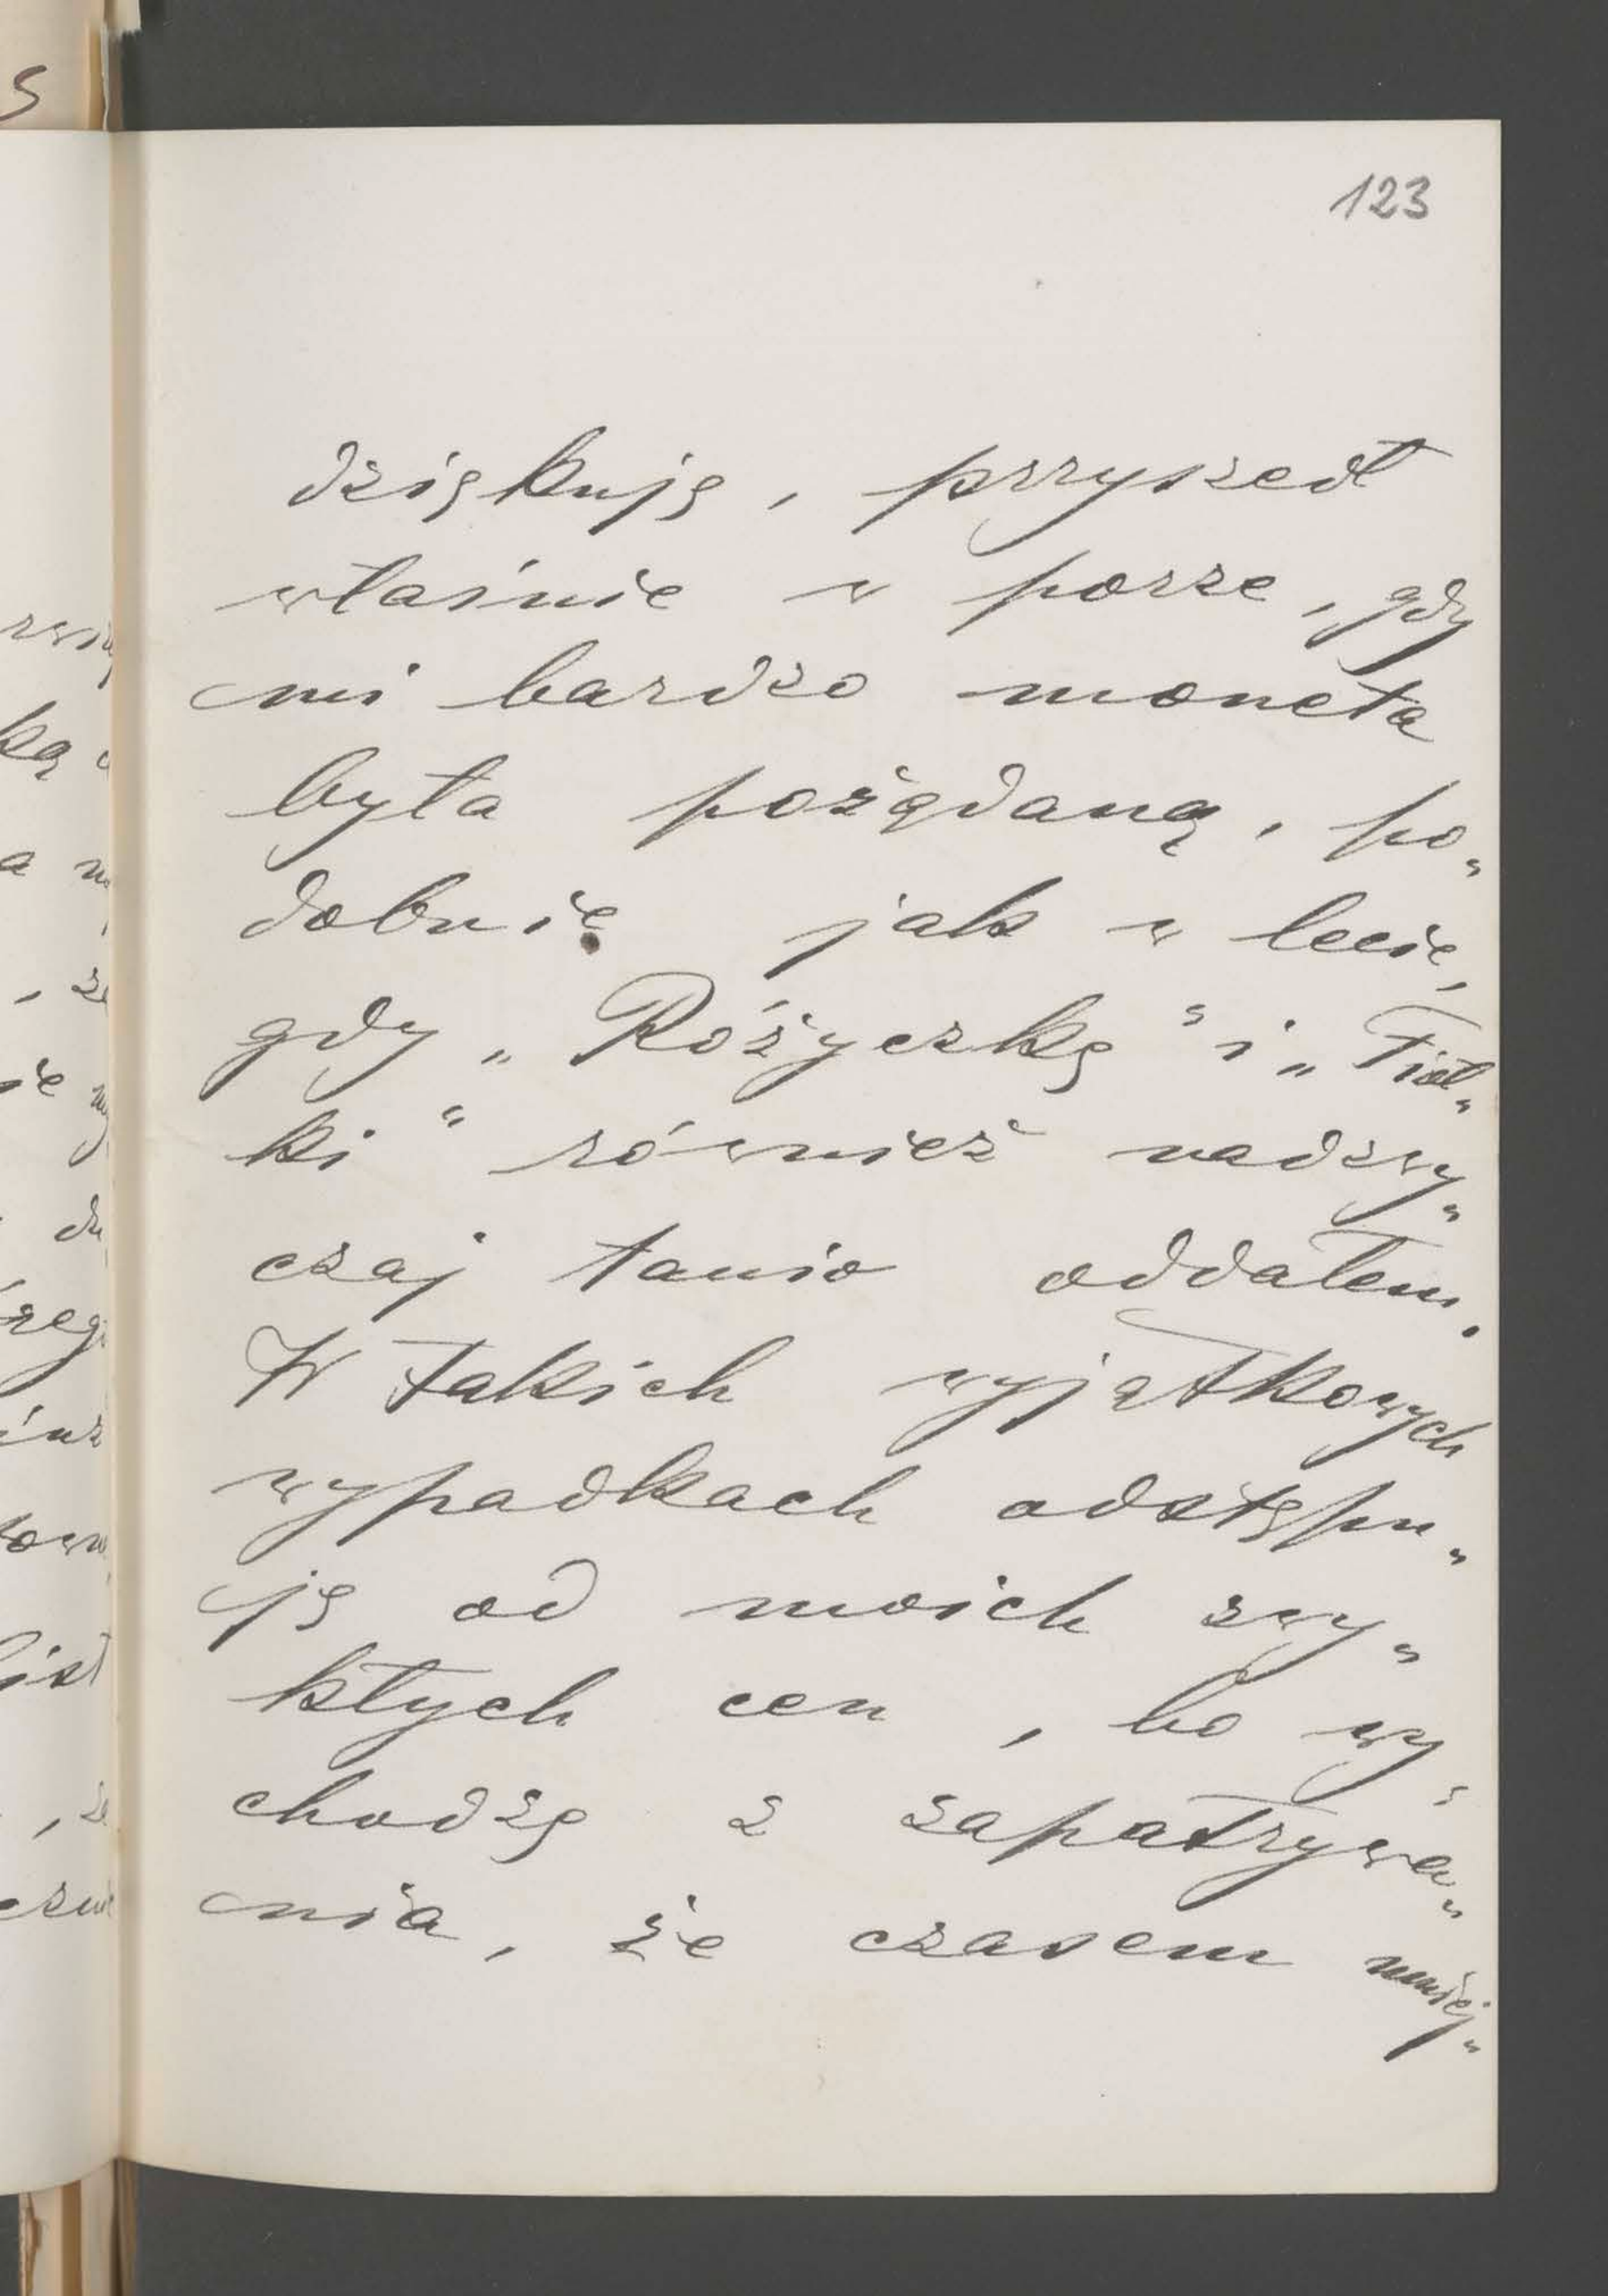 123
dziękuję, przyszedł
właśnie w porze, gdy
mi bardzo moneta
była pożądaną, po„
dobnie jak w lecie,
gdy „Różyczkę" i „Fioł„
ki" również nadzwy„
czaj tanio oddałem.
W takich wyjątkowych
wypadkach odstępu„
ję od moich zwy„
kłych cen, bo wy„
chodzę z zapatrywa„
nia, że czasem mniej„